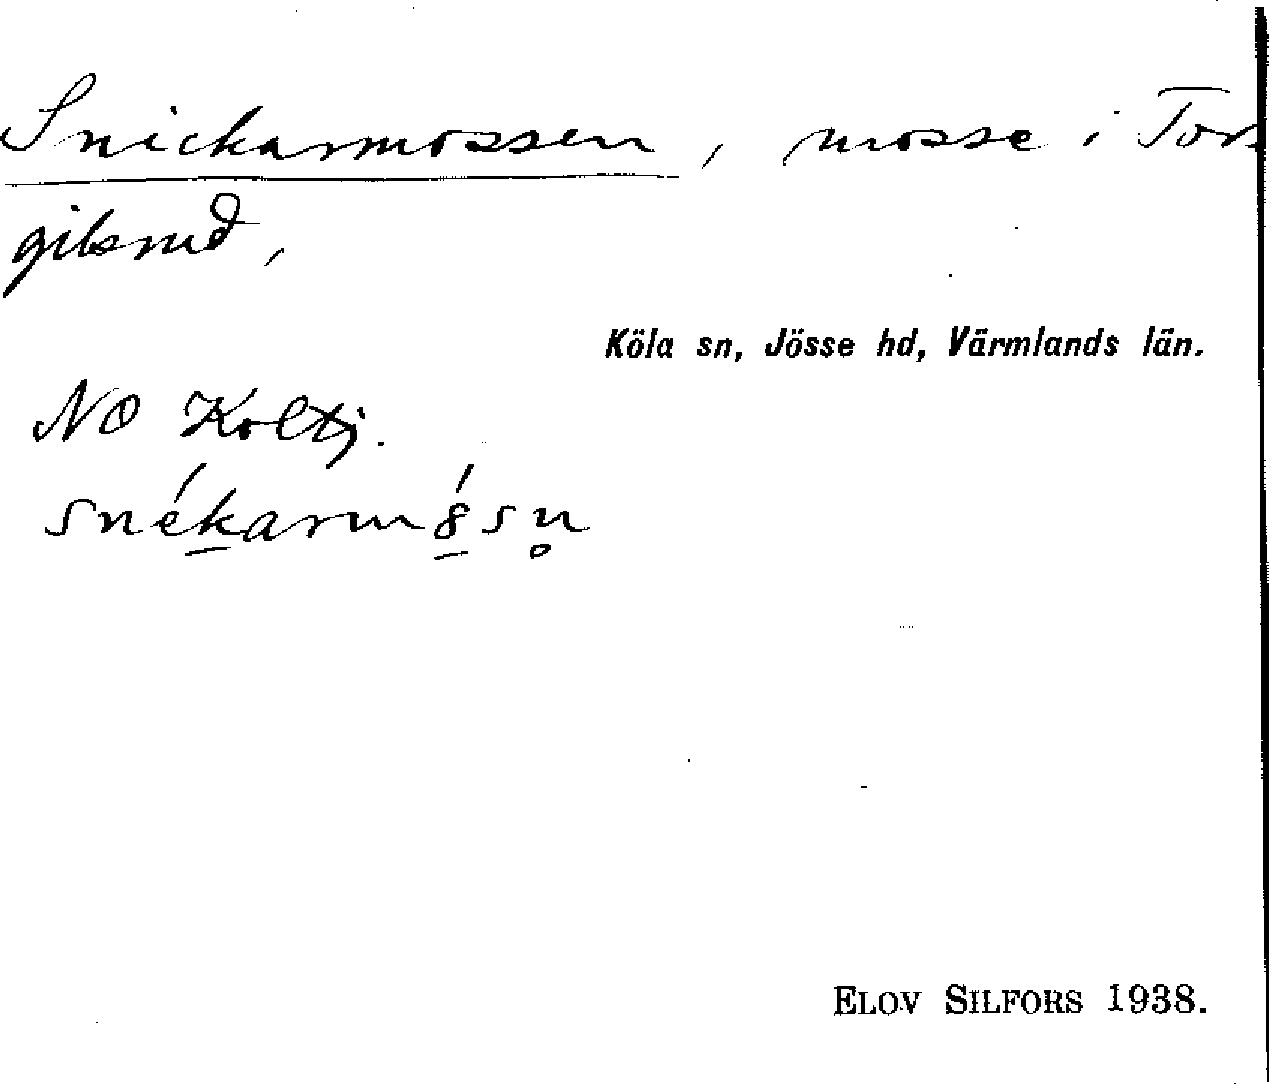 Snickarmossen, mosse i Tor
gilsrud,
Köla sn, Jösse hd, Värmlands län.
NO Koltj.
snékarmósn̥
ELOV SILFORS 1938.